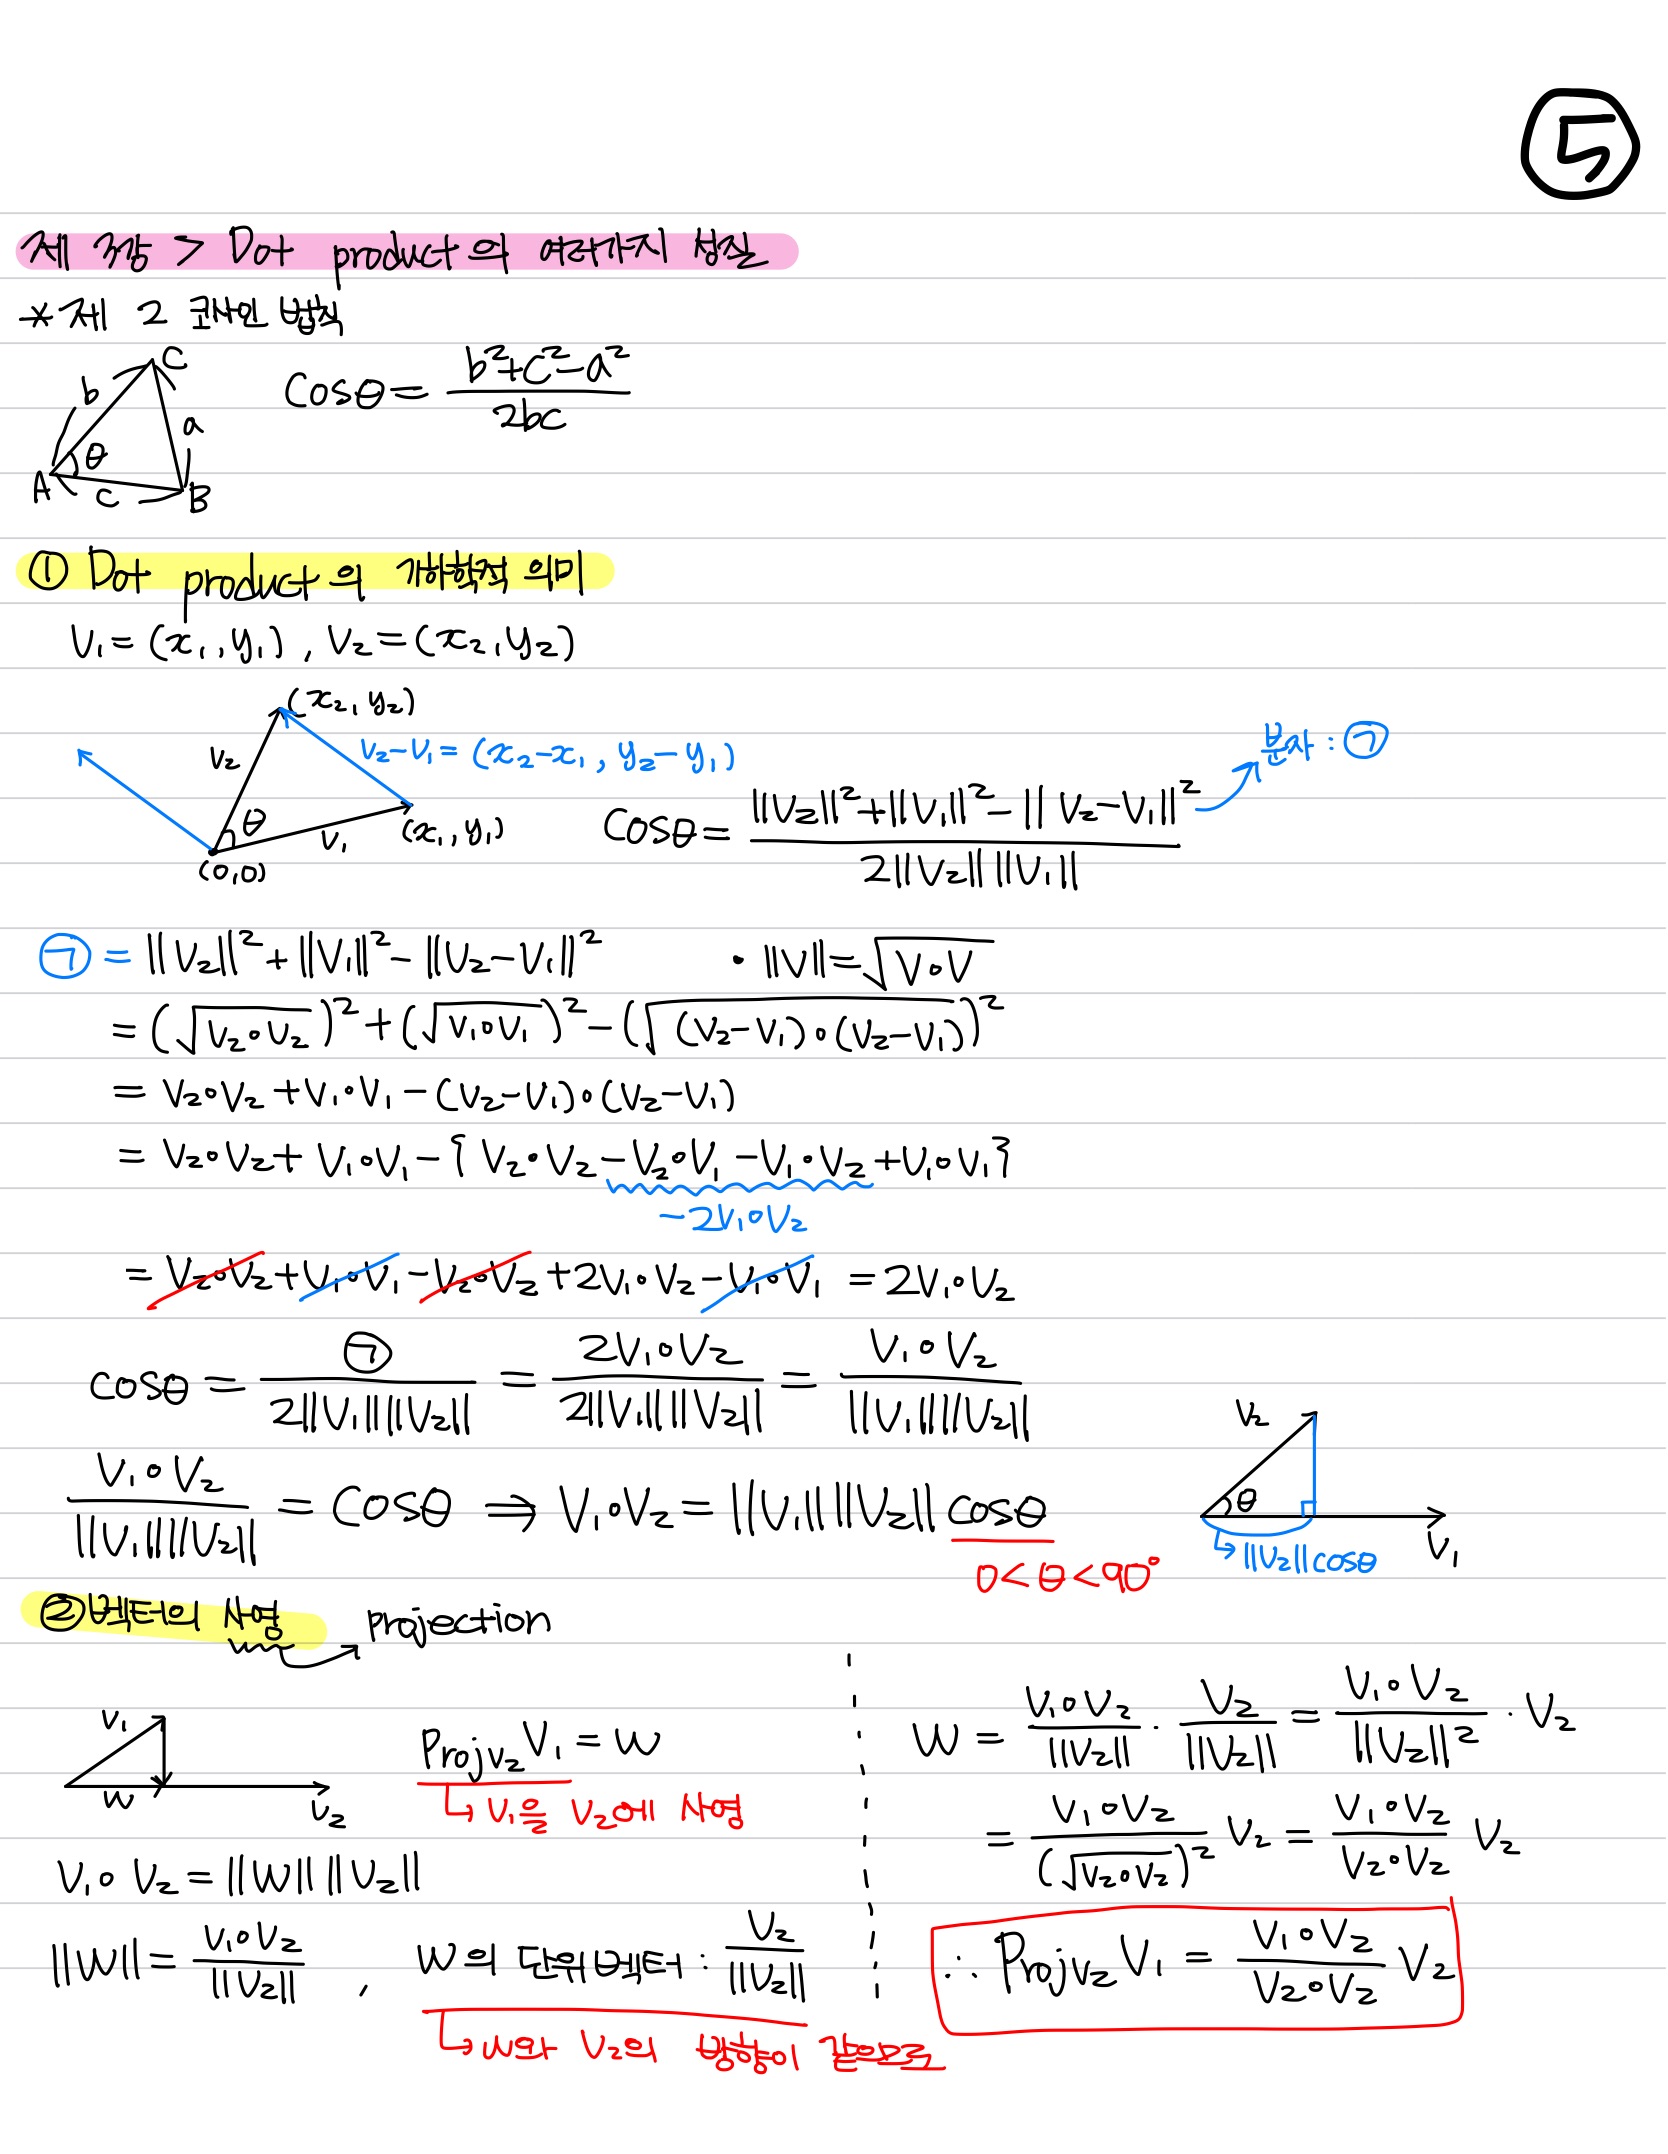 ⑤
제 3장 > Dot product의 여러가지 성질
*제 2 코사인 법칙
C
b
a
θ
A
c
B
cosθ = (b²+c²-a²)/(2bc)
① Dot product의 기하학적 의미
V₁=(x₁,y₁), V₂=(x₂,y₂)
(x₂,y₂)
V₂
V₂-V₁=(x₂-x₁, y₂-y₁)
θ
V₁
(x₁,y₁)
(0,0)
cosθ = (||V₂||²+||V₁||²-||V₂-V₁||²)/(2||V₂||||V₁||)
분자 : ㉠
㉠ = ||V₂||²+||V₁||²-||V₂-V₁||²
· ||V||=√(V∘V)
= (√(V₂∘V₂))²+(√(V₁∘V₁))²-(√((V₂-V₁)∘(V₂-V₁)))²
= V₂∘V₂+V₁∘V₁-(V₂-V₁)∘(V₂-V₁)
= V₂∘V₂+V₁∘V₁-{V₂∘V₂-V₂∘V₁-V₁∘V₂+V₁∘V₁}
-2V₁∘V₂
= V₂∘V₂+V₁∘V₁-V₂∘V₂+2V₁∘V₂-V₁∘V₁ = 2V₁∘V₂
cosθ = ㉠/(2||V₁||||V₂||) = (2V₁∘V₂)/(2||V₁||||V₂||) = (V₁∘V₂)/(||V₁||||V₂||)
(V₁∘V₂)/(||V₁||||V₂||) = cosθ ⟹ V₁∘V₂=||V₁||||V₂||cosθ
0<θ<90°
V₂
θ
V₁
↳||V₂||cosθ
②벡터의 사영 → projection
V₁
W
V₂
Projv₂V₁ = W
↳ V₁을 V₂에 사영
V₁∘V₂=||W||||V₂||
||W||=(V₁∘V₂)/||V₂|| , W의 단위벡터 : V₂/||V₂||
↳ W와 V₂의 방향이 같으므로
W = (V₁∘V₂)/||V₂|| · V₂/||V₂|| = (V₁∘V₂)/||V₂||² · V₂
= (V₁∘V₂)/(√(V₂∘V₂))² V₂ = (V₁∘V₂)/(V₂∘V₂) V₂
∴ Projv₂V₁ = (V₁∘V₂)/(V₂∘V₂) V₂